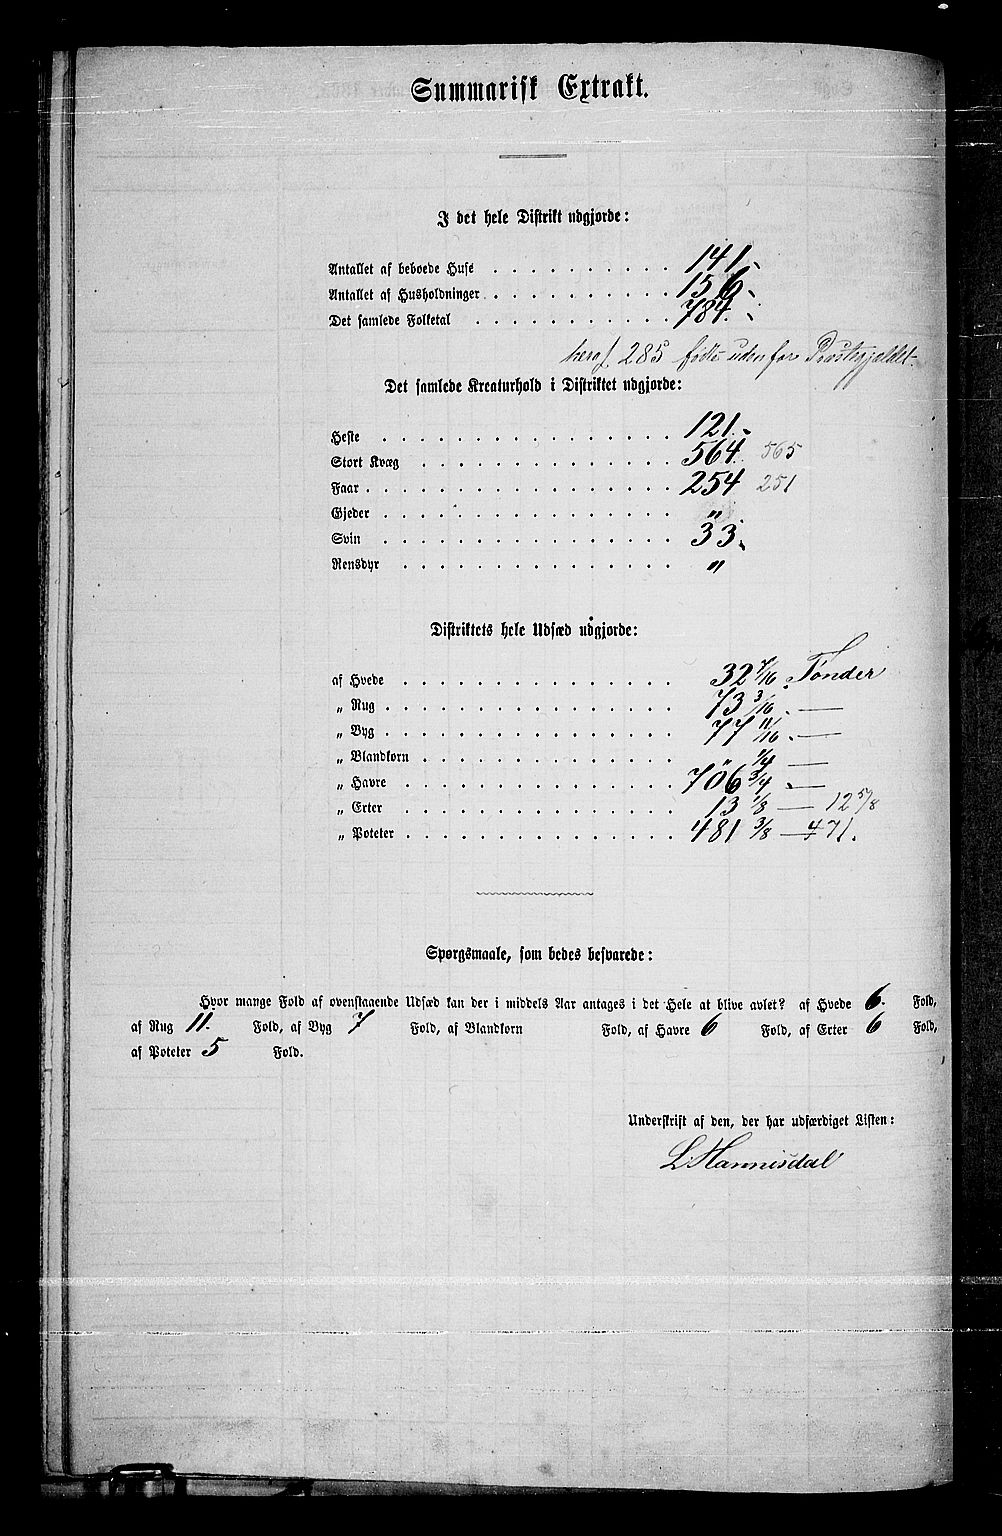 Summarisk Extrakt.
I det hele Distrikt udgjorde:
Antallet af beboede Huse . . . . . . . . . . 141.
Antallet af Husholdninger . . . . . . . . . . 156.
Det samlede Folketal . . . . . . . . . . . 784.
heraf 285 fødte udenfor Præstegjældet.
Det samlede Kreaturhold i Distriktet udgjorde:
Heste . . . . . . . . . . . . . . . . 121.
Stort Kvæg . . . . . . . . . . . . . . 564. 565
Faar . . . . . . . . . . . . . . . . . 254 251
Gjeder . . . . . . . . . . . . . . . . „
Svin . . . . . . . . . . . . . . . . 33.
Rensdyr . . . . . . . . . . . . . . . „
Distriktets hele Udsæd udgjorde:
af Hvede . . . . . . . . . . . . . . . 32 7/16 Tønder
„ Rug . . . . . . . . . . . . . . . . 73 3/16 . —
„ Byg . . . . . . . . . . . . . . . . 77 11/16 . —
„ Blandkorn . . . . . . . . . . . . . „ 1/4 —
„ Havre . . . . . . . . . . . . . . . 706 3/4 . —
„ Erter . . . . . . . . . . . . . . . 13 1/8 — 12 5/8
„ Poteter . . . . . . . . . . . . . . 481 3/8 — 471.
Spørgsmaale, som bedes besvarede:
Hvor mange Fold af ovenstaaende Udsæd kan der i middels Aar antages i det Hele at blive avlet? af Hvede 6. Fold,
af Rug 11. Fold, af Byg 7 Fold, af Blandkorn Fold, af Havre 6 Fold, af Erter 6 Fold,
af Poteter 5 Fold.
Underskrift af den, der har udfærdiget Listen:
L. Hannisdal